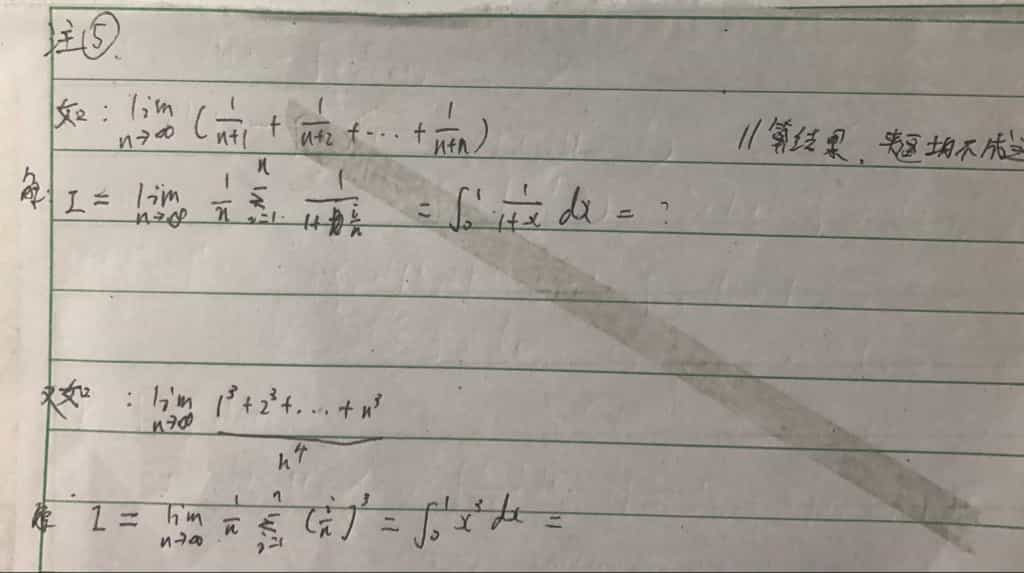 注⑤.
如: lim n→∞ (1/(n+1) + 1/(n+2) + ... + 1/(n+n)) //算结果,
解: I = lim n→∞ 1/n Σ i=1 n 1/(1+i/n) = ∫₀¹ 1/(1+x) dx = ?
又如: lim n→∞ (1³+2³+...+n³)/n⁴
解 I = lim n→∞ 1/n Σ i=1 n (i/n)³ = ∫₀¹ x³ dx =